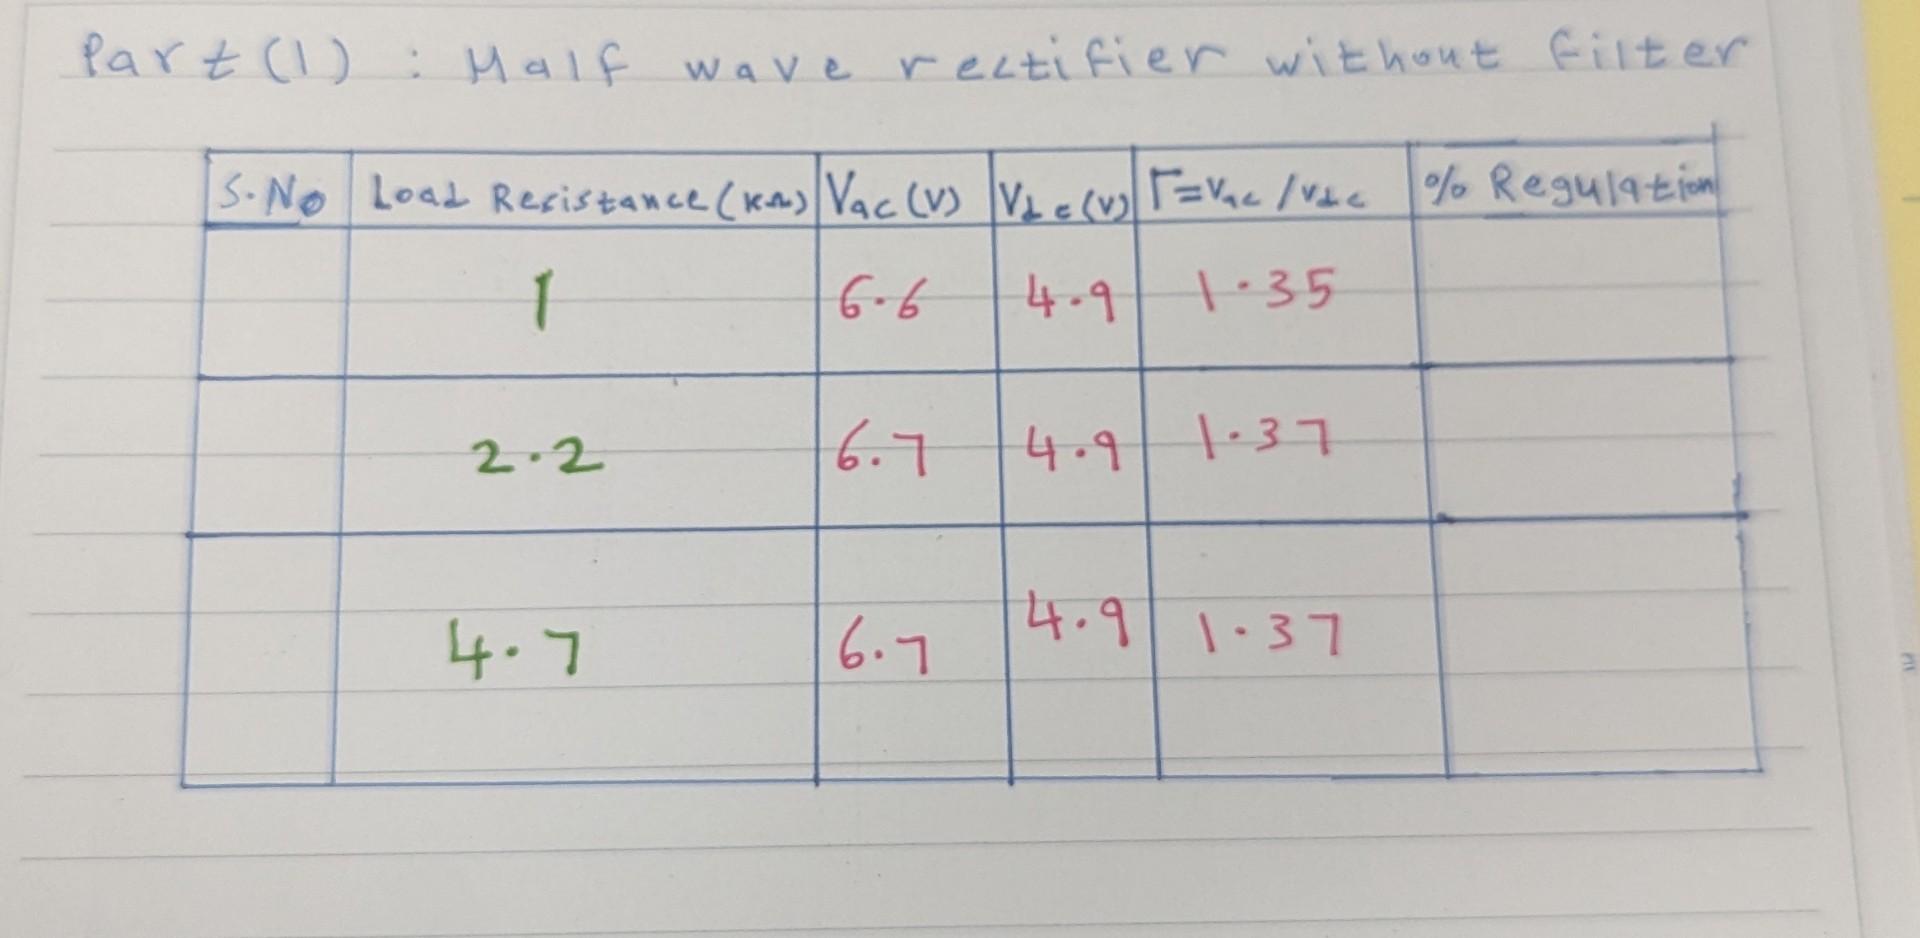 Part (1) : Half wave rectifier without filter
S.No Load Resistance (KΩ) Vac (V) Vdc (V) Γ=Vac / Vdc % Regulation
1 6.6 4.9 1.35
2.2 6.7 4.9 1.37
4.7 6.7 4.9 1.37